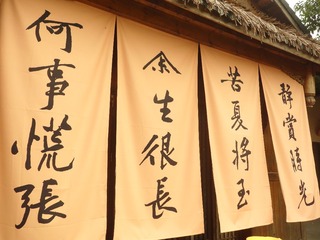 何事慌張
余生很長
苦夏將至
靜賞時光